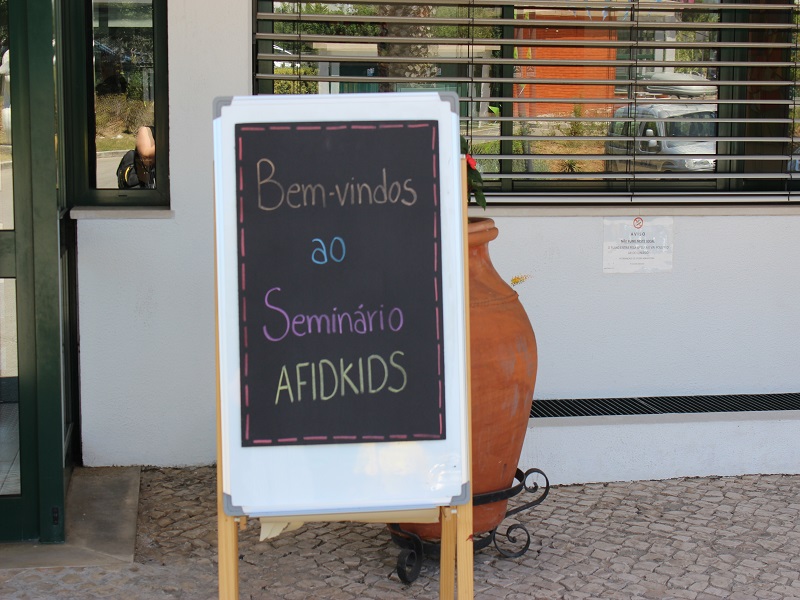 Bem-vindos
ao
Seminário
AFIDKIDS
AVISO